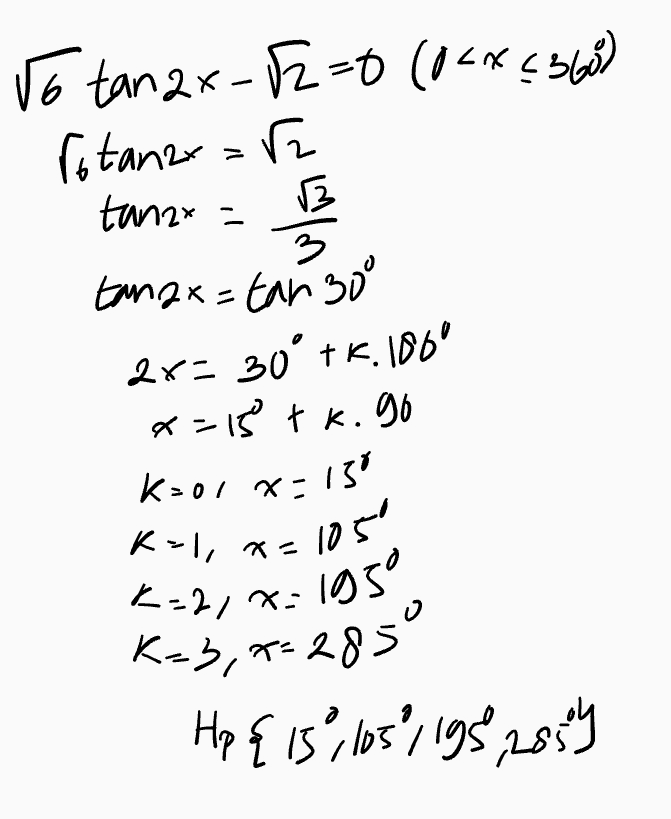 √6 tan2x - √2 = 0 (0 < x ≤ 360°)
√6 tan2x = √2
tan2x = √3/3
tan2x = tan 30°
2x = 30° + K. 180°
x = 15° + K. 90
K=0, x = 15°
K=1, x = 105°
K=2, x = 195°
K=3, x = 285°
Hp { 15°, 105°, 195°, 285° }